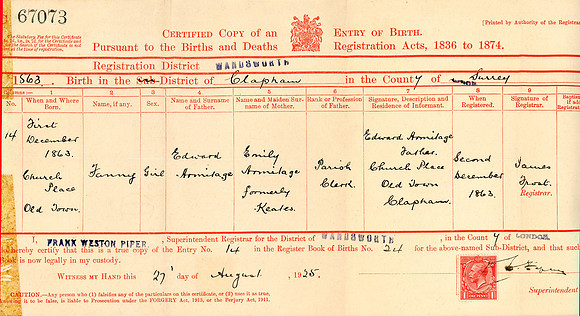 67073
CERTIFIED COPY of an ENTRY OF BIRTH.
[Printed by Authority of the Registrar
The Statutory Fee for this Certificate is
Pursuant to the Births and Deaths Registration Acts, 1836 to 1874.
Registration District WANDSWORTH
1863. Birth in the Sub-District of Clapham in the County of LONDON Surrey
No.
1 When and Where Born.
2 Name, if any.
3 Sex.
4 Name and Surname of Father.
5 Name and Maiden Surname of Mother.
6 Rank or Profession of Father.
7 Signature, Description and Residence of Informant.
8 When Registered.
9 Signature of Registrar.
14
First
December
1863.
Church
Place
Old Town.
Fanny
Girl
Edward
Armitage
Emily
Armitage
formerly
Keates.
Parish
Clerk.
Edward Armitage
Father.
Church Place
Old Town
Clapham.
Second
December
1863.
James
Frost.
Registrar.
I, FRANK WESTON PIPER, Superintendent Registrar for the District of WANDSWORTH, in the County of LONDON,
hereby certify that this is a true copy of the Entry No. 14 in the Register Book of Births No. 24 for the above-named Sub-District, and that such
is now legally in my custody.
WITNESS MY HAND this 27 day of August, 1925.
Superintendent
CAUTION.—Any person who (1) falsifies any of the particulars on this certificate, or (2) uses it as true,
knowing it to be false, is liable to Prosecution under the FORGERY Act, 1913, or the Perjury Act, 1911.